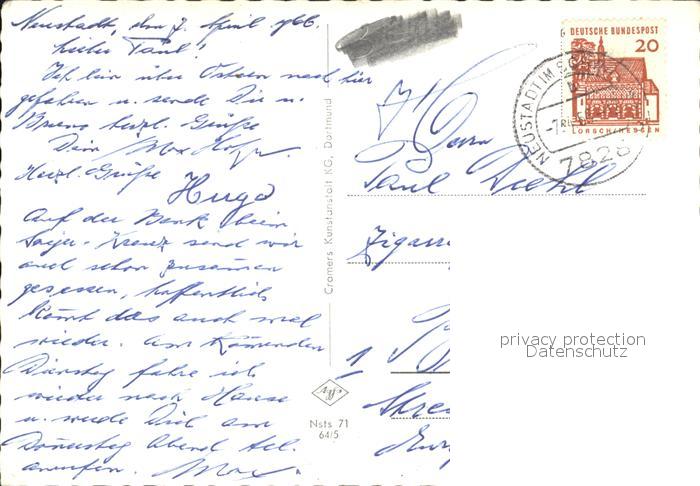 Neustadt, den 7. April 1966.
Lieber Paul!
Ich bin über Ostern nach hier
gefahren u. sende Dir u.
herzl. Grüße
Dein Max
Herzl. Grüße
Hugo
Auf der Bank beim
Kreuz sind wir
auch schon zusammen
gesessen, hoffentlich
kommt das auch mal
wieder. Am kommenden
Dienstag fahre ich
wieder nach Hause
u. werde Dich am
Donnerstag Abend tel.
anrufen. Max
Cramers Kunstanstalt KG, Dortmund
Nsts 71
64/5
DEUTSCHE BUNDESPOST
20
LORSCH/HESSEN
NEUSTADT IM SCHW
7828
Herrn
Paul Diehl
Zigarr
1
privacy protection
Datenschutz